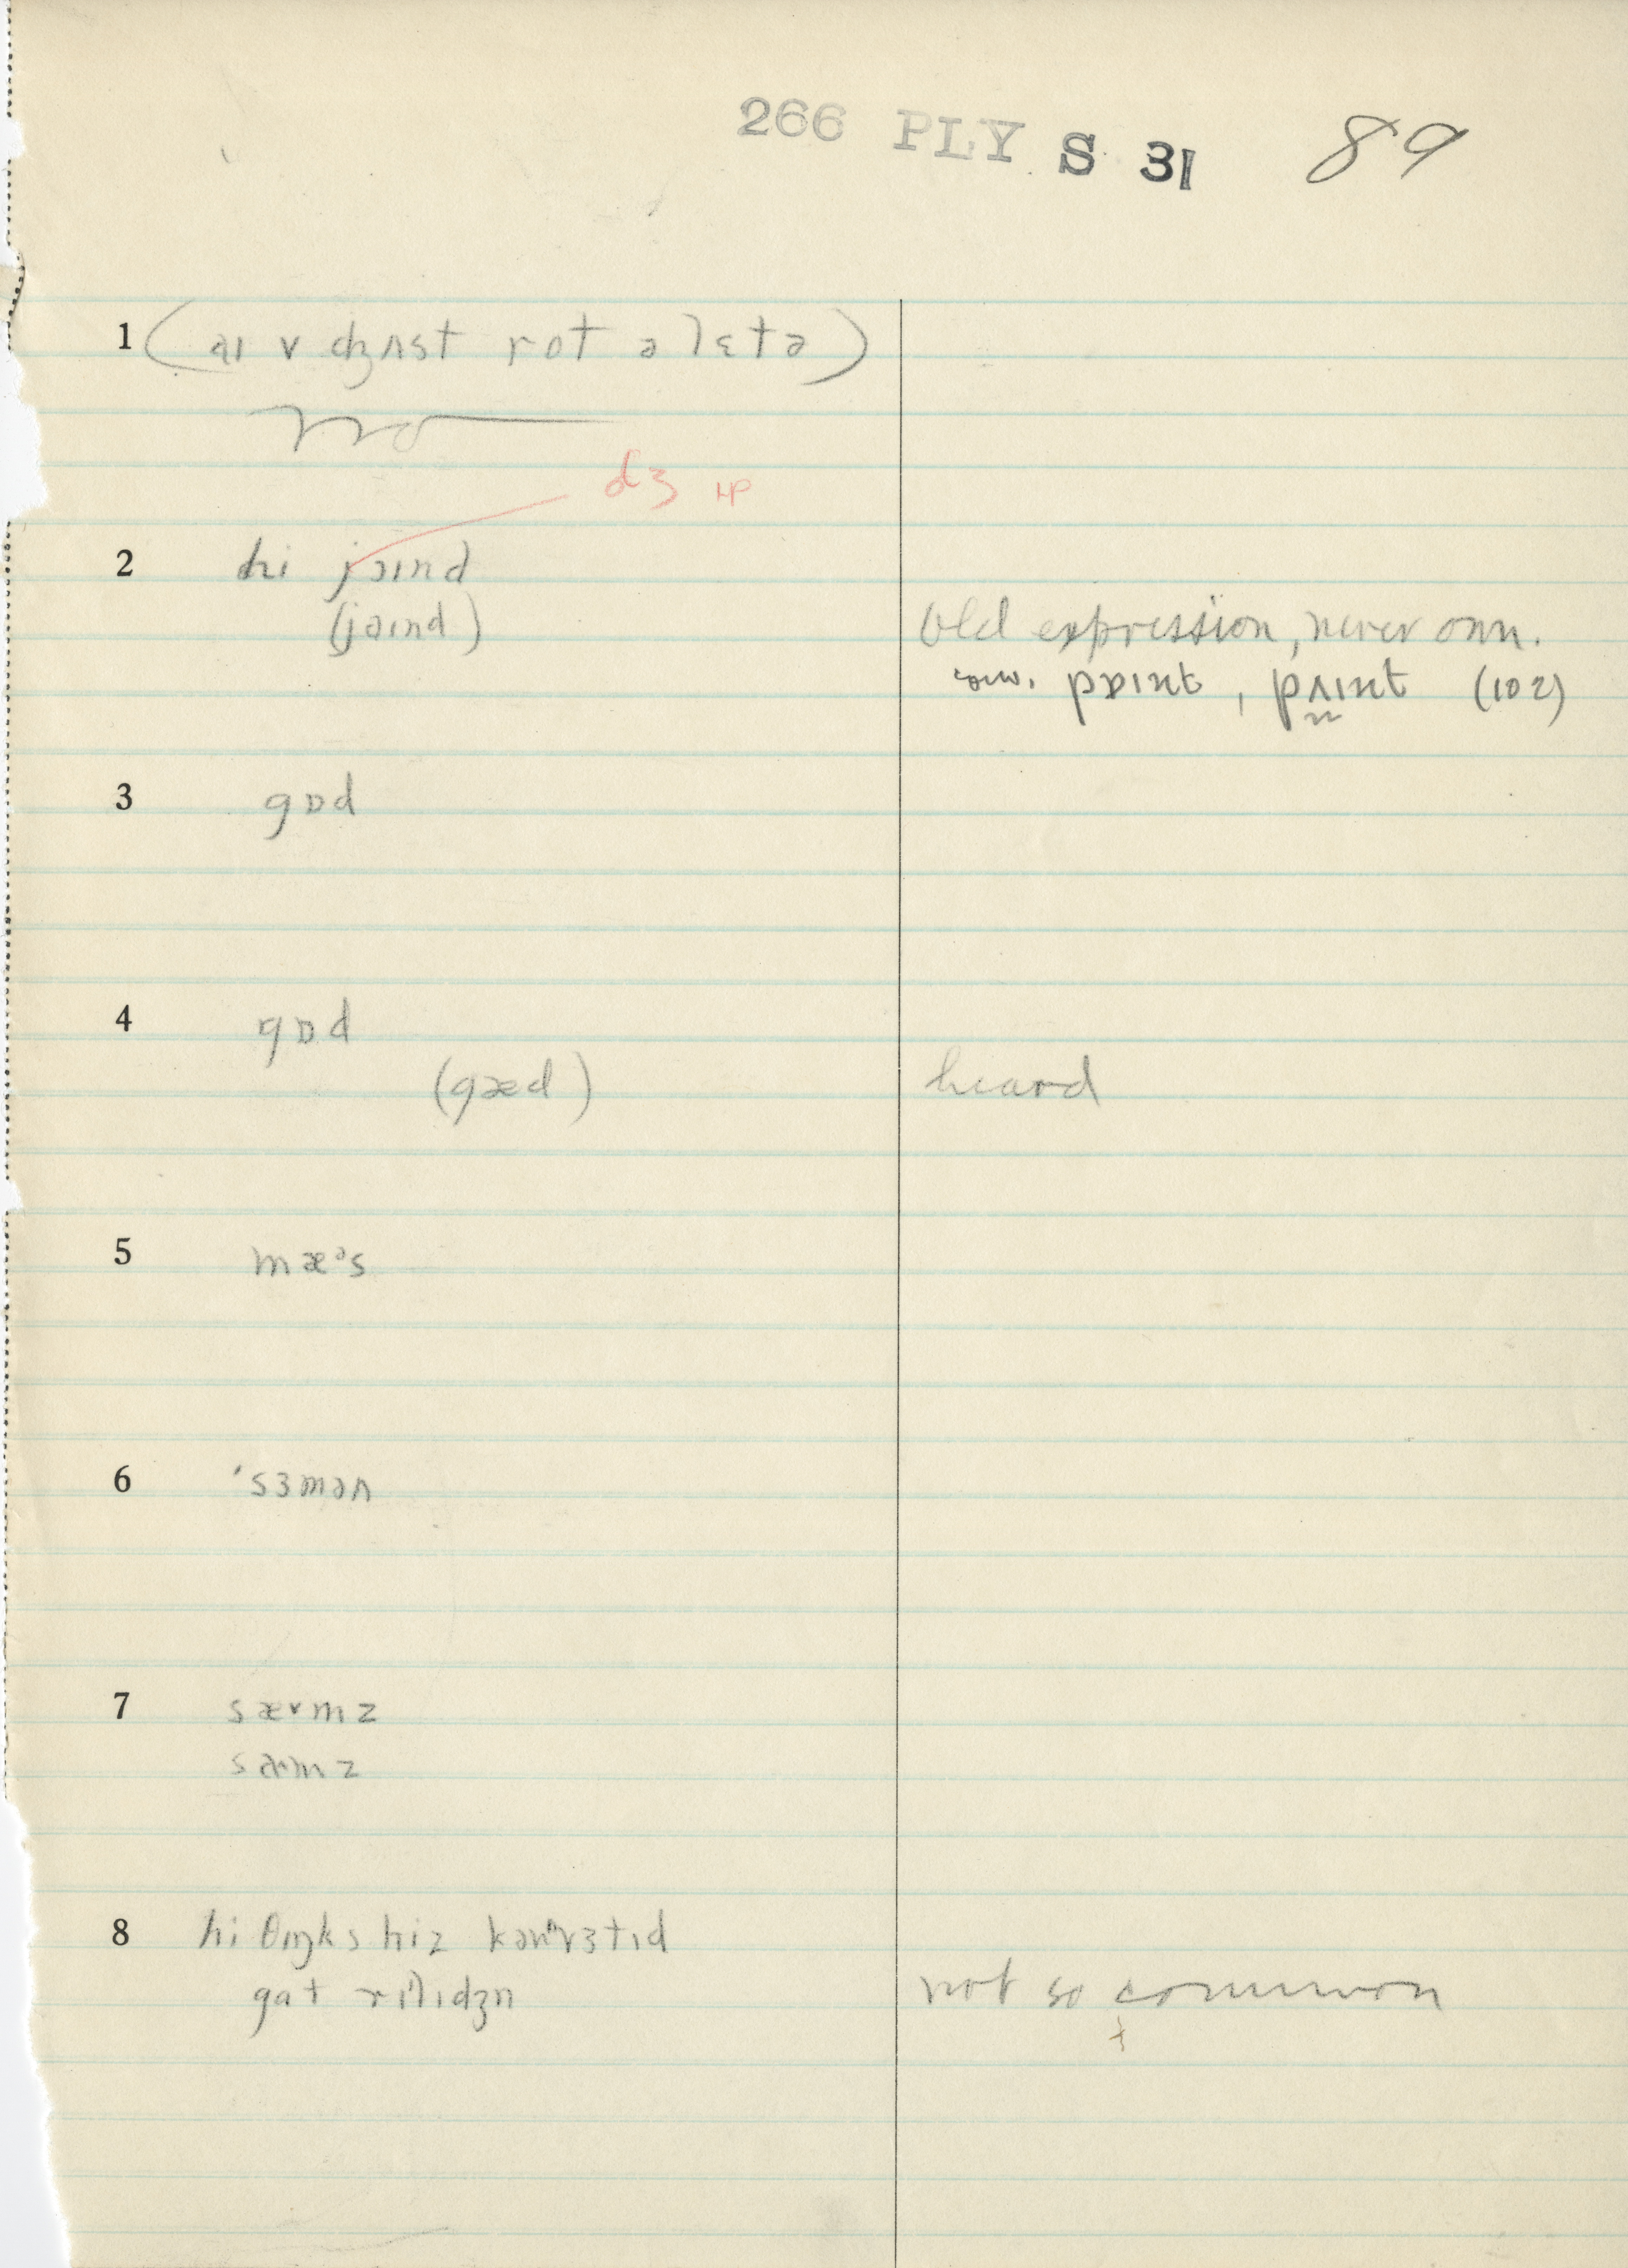 266 PLY S 31 89
1 (aɪ v dʒʌst rot ə lɛtə)
dʒ HP
2 hi jɔɪnd
(jəɪnd) Old expression, never own.
pɒɪnt, pʌɪnt (102)
3 gɒd
4 gɒd
(gæd) heard
5 mæᵊs
6 'sɜmən
7 sævmz
samz
8 hi θɪŋks hiz kənvɜtɪd
gat rɪlɪdʒn not so common